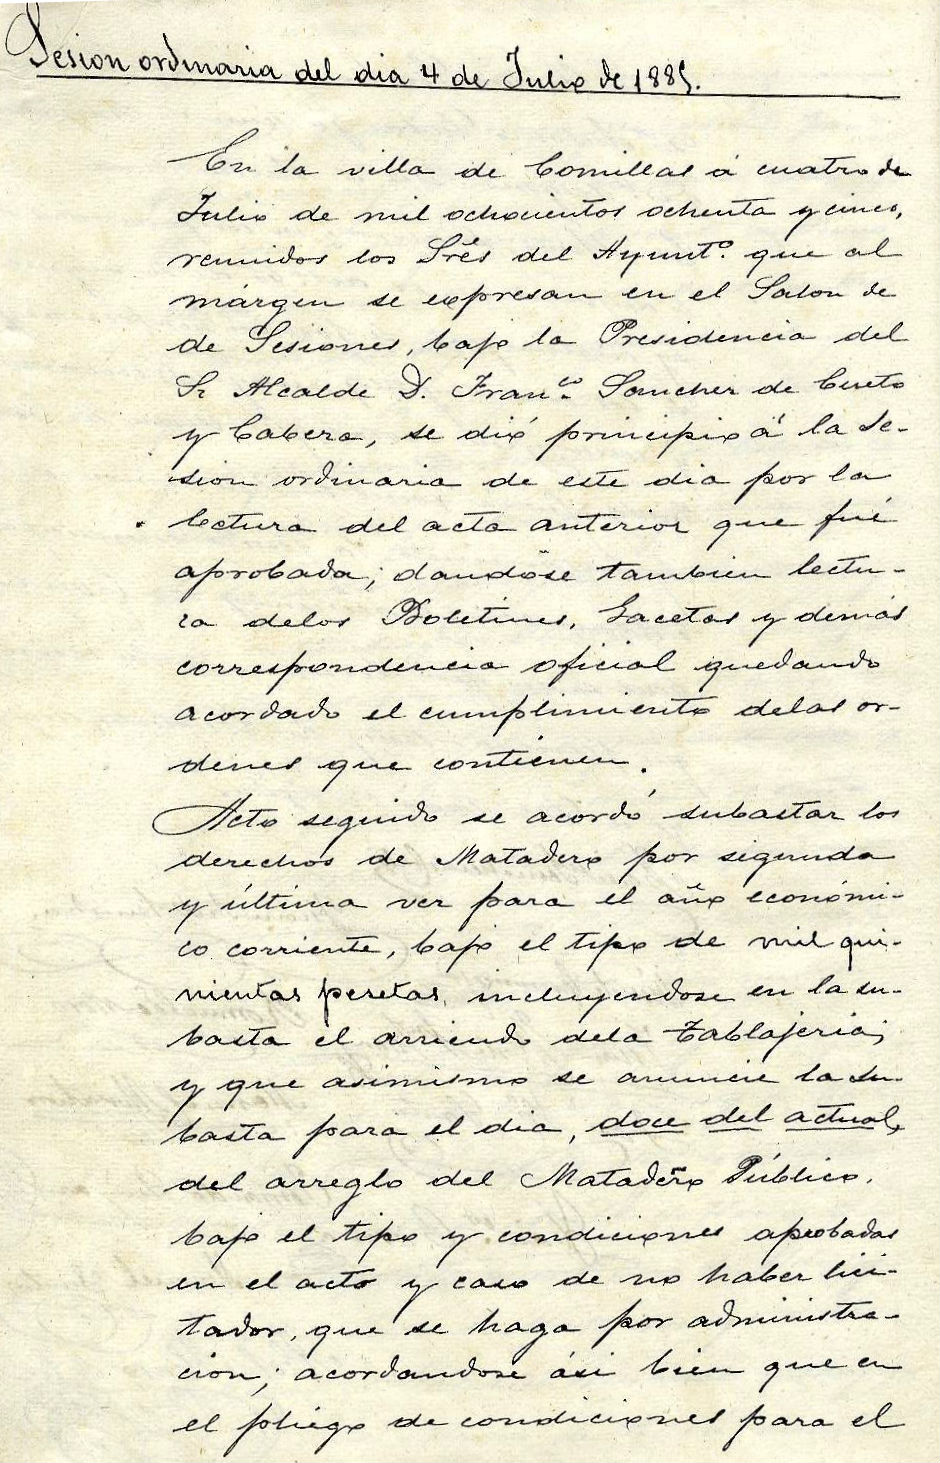 Sesion ordinaria del dia 4 de Julio de 1885.
En la villa de Comillas á cuatro de
Julio de mil ochocientos ochenta y cinco,
reunidos los Srēs del Ayuntº. que al
márgen se expresan en el Salon de
de Sesiones, bajo la Presidencia del
Sr Alcalde D. Franᶜᵒ. Sanchez de Cueto
y Cabeza, se dió principio á la Se-
sion ordinaria de este dia por la
lectura del acta anterior que fué
aprobada; dandose tambien lectu-
ra delos Boletines, Gacetas y demás
correspondencia oficial quedando
acordado el cumplimiento delas or-
denes que contienen.
Acto seguido se acordó subastar los
derechos de Matadero por segunda
y última vez para el año económi-
co corriente, bajo el tipo de mil qui-
nientas pesetas, incluyendose en la su-
basta el arriendo dela Tablajeria;
y que asimismo se anuncie la su-
basta para el dia, doce del actual,
del arreglo del Matadero Público,
bajo el tipo y condiciones aprobadas
en el acto y caso de no haber lici-
tador, que se haga por administra-
cion; acordandose ási bien que en
el pliego de condiciones para el